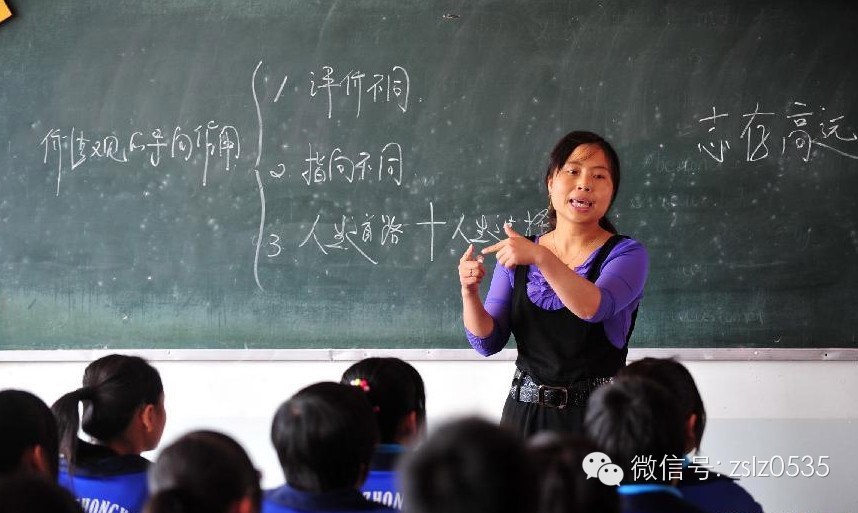 价值观的导向作用
1 评价不同.
2 指向不同.
3 人生道路十人生选择
志存高远
ZHONGH
ZHO
微信号: zslz0535